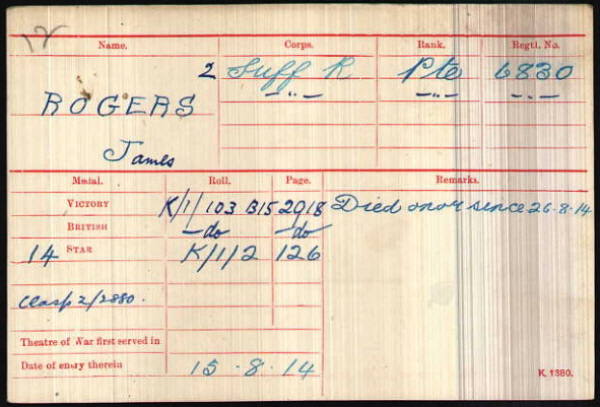 12
Name. Corps. Rank. Regtl. No.
2 Suff R Pte 6830
ROGERS -"- -"- -"-
James
Medal. Roll. Page. Remarks.
VICTORY K/1/103 B15 2018 Died on or since 26.8.14
BRITISH -do- -do-
14 STAR K/1/2 126
Clasp 2/2880.
Theatre of War first served in
Date of entry therein 15.8.14
K. 1380.